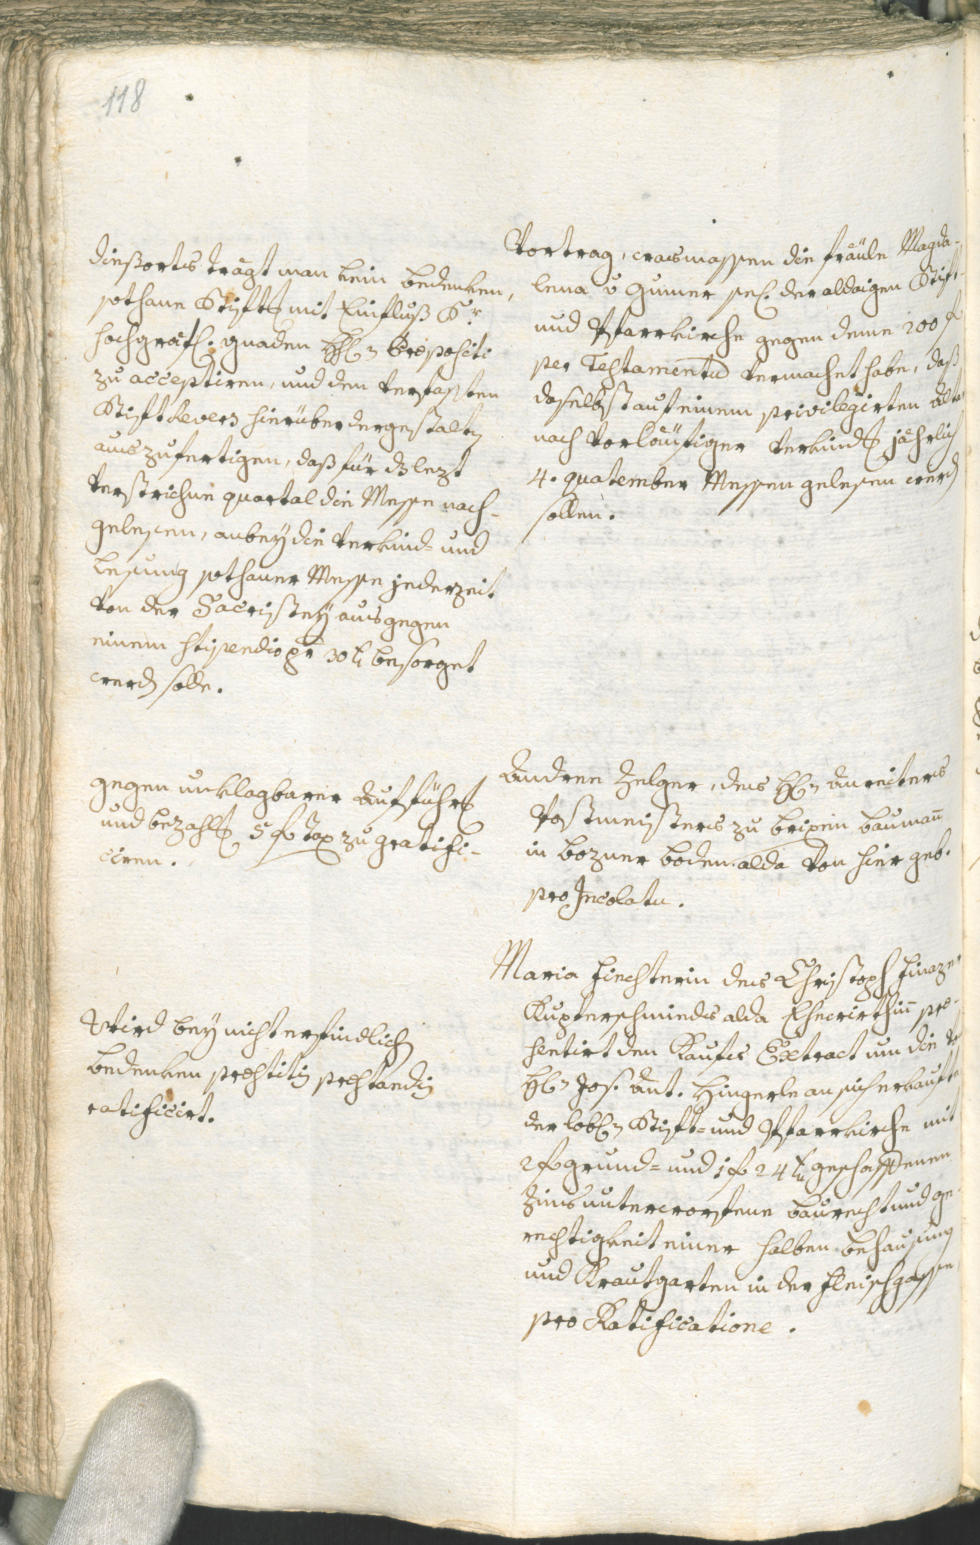 118
Vortrag, wasmassen die Fräule Magda-
lena v Gumer sel. der aldaigen Stift-
und Pfarrkirche gegen deme 200 f
per Testamentū vermachet habe, daß
daselbst auf einem privilegirten Altar
nach vorläufiger verkündtg jährlich
4. quatember Messen gelesen werdn
sollen.
dießorts trägt man kein bedenken,
sothane Stifftg mit Einfluß Sr
hochgräfl. gnaden Hhl. Præpositi
zu acceptiren, und den verfassten
Stift Revers hierüber dergestaltn
auszufertigen, daß für dz lezt
verstrichne quartal die Messe nach-
gelesen, anbey die verkünd- und
Lesung sothaner Messe jederzeit
von der Sacristey aus gegen
einem stipendio pr 30 kr besorget
werdn solle.
Andree Zelger, des Hhl. Anreiters
Postmeisters zu brixen baumann
in bozner boden alda von hier geb.
pro Incolatu.
gegen unklagbarer Aufführg
und bezahltg 5 f tax zu gratifi-
ciren.
Maria Fiechterin des Christoph Finazer
Kupferschmieds alda Ehewirthin præ-
sentirt den Kaufs Extract um die von
Hhl. Jos. Ant. Hingerle an sich erkaufte
der lobl. Stift- und Pfarrkirche mit
2 f grund- und 1 f 24 kr geschaffenen
Zins unterworfene baurecht und ge-
rechtigkeit einer halben behausung
und Krautgarten in der Fleischgasse
pro Ratificatione.
Wird bey nicht erfindlichn
bedenken præstitis præstandis
ratificirt.